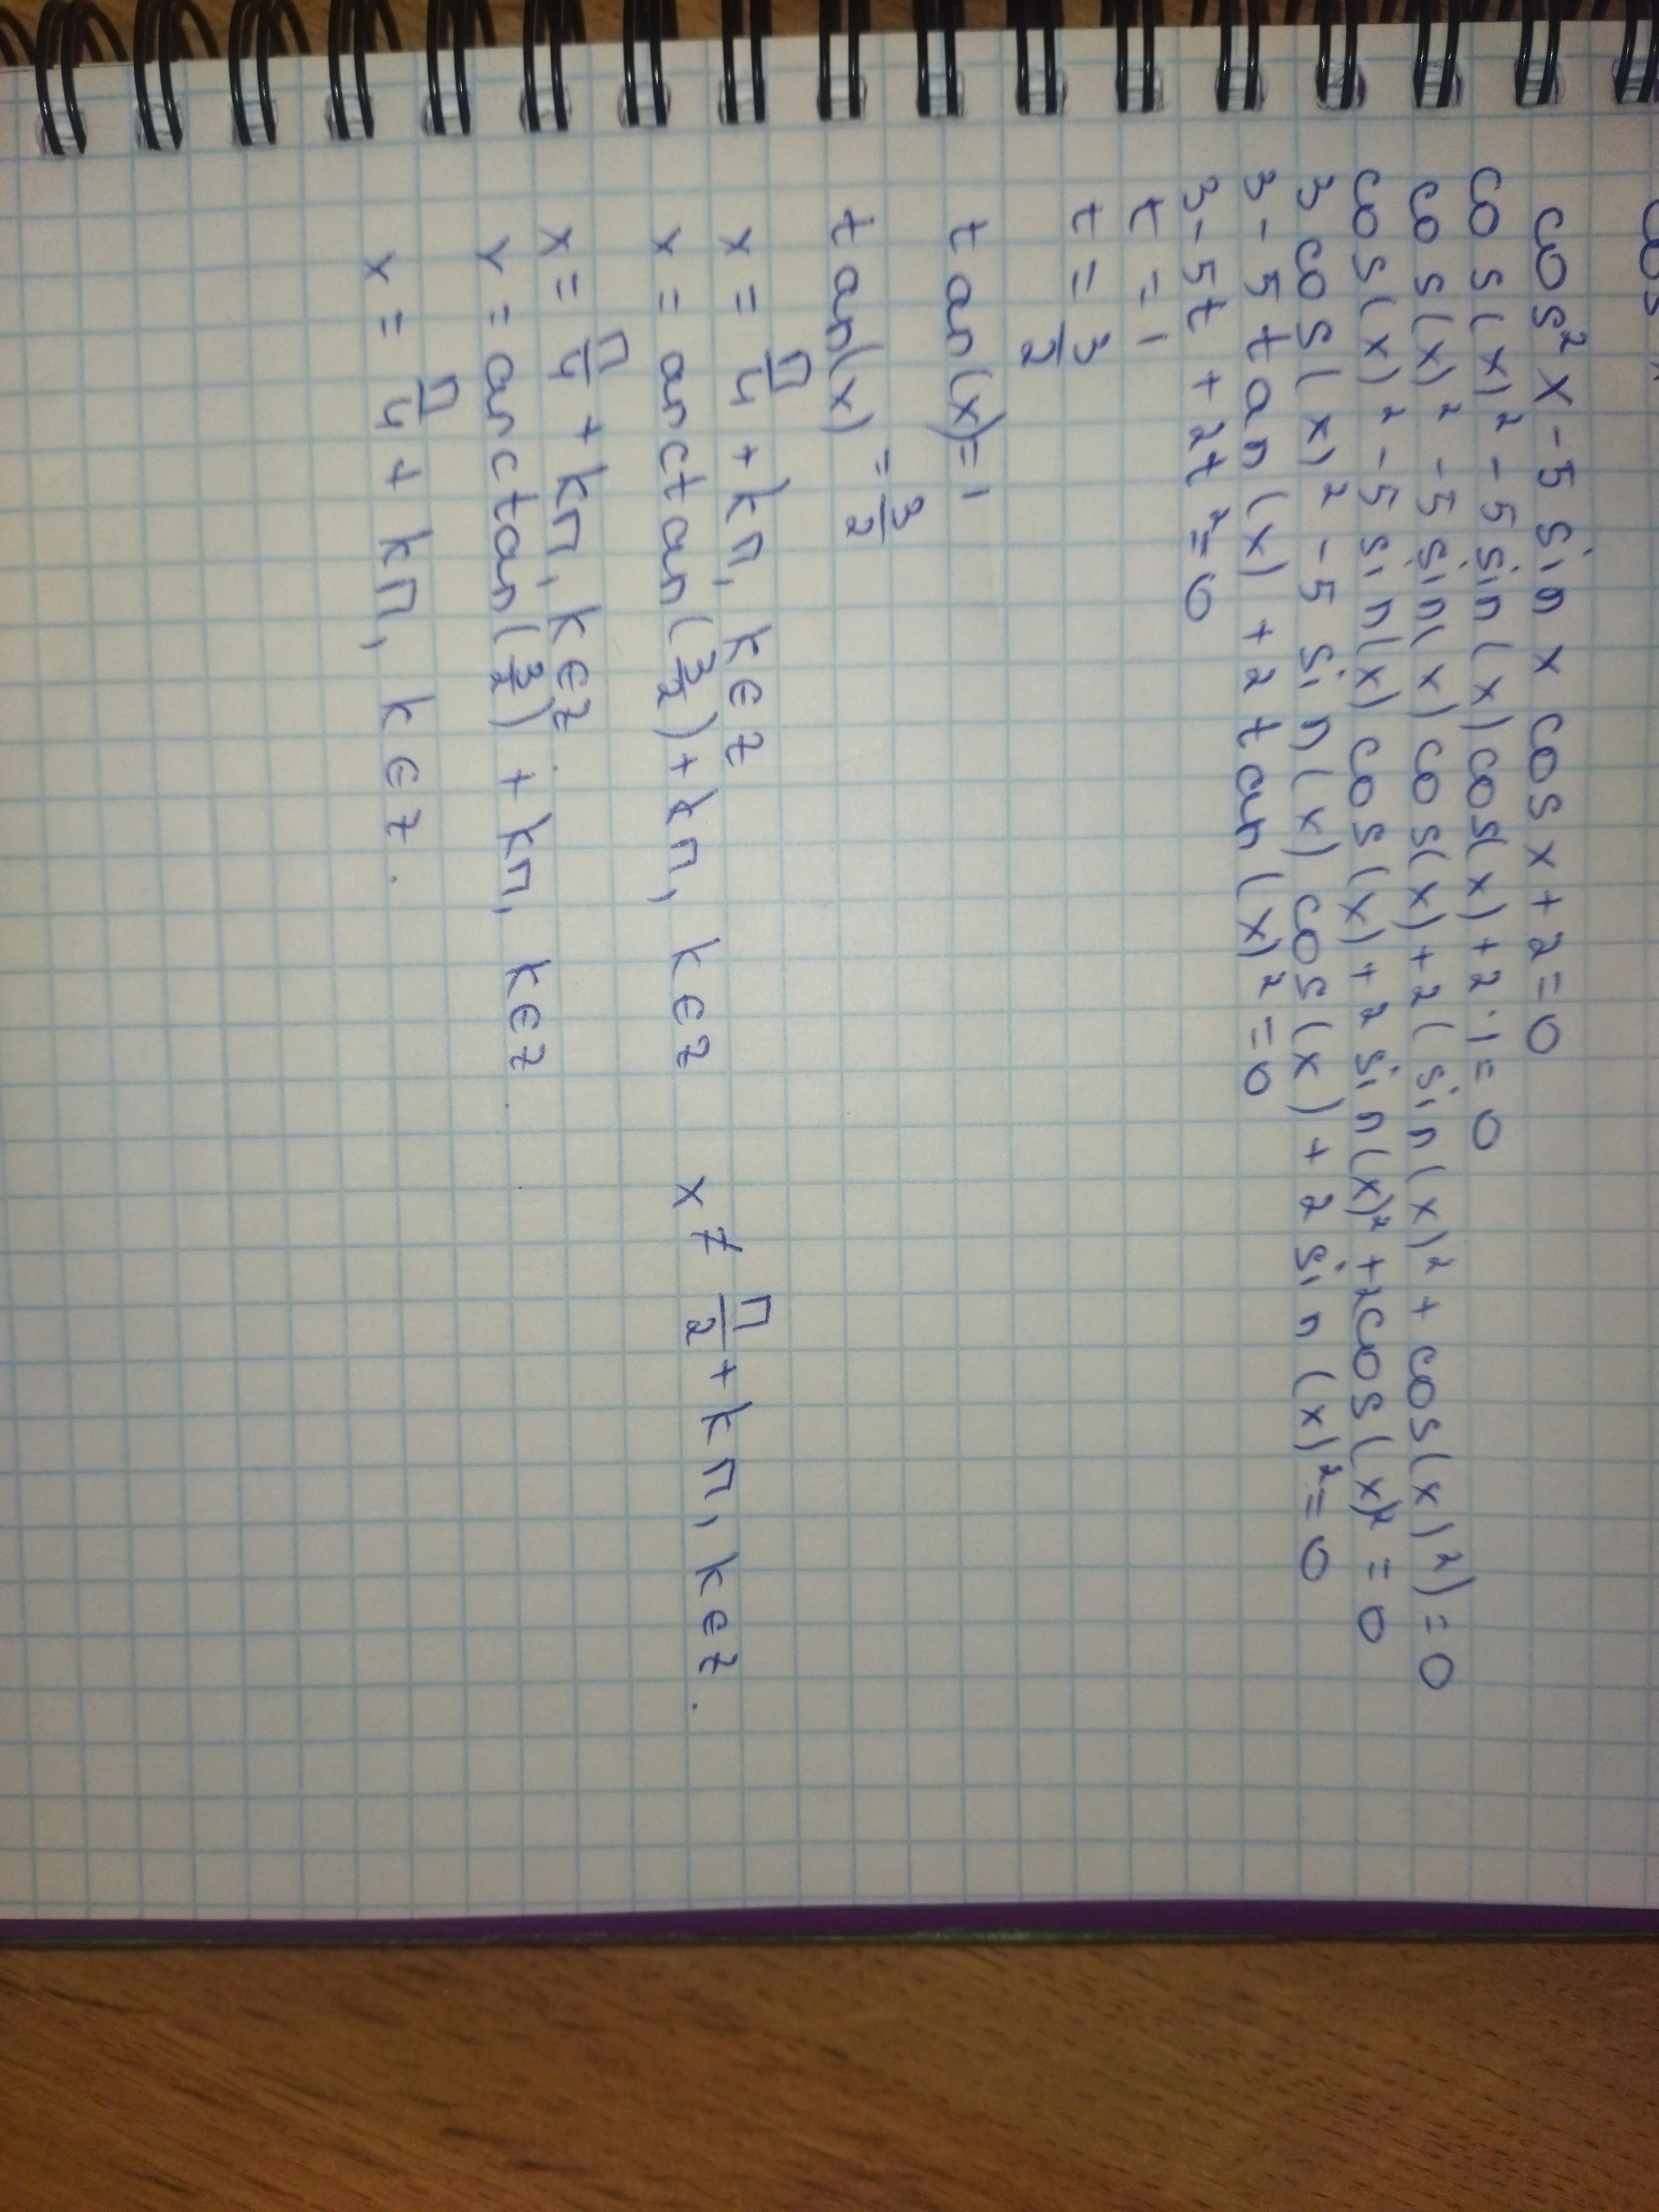 cos
cos²x-5 sin x cos x+2=0
cos(x)²-5sin(x)cos(x)+2·1=0
cos(x)²-5sin(x)cos(x)+2(sin(x)²+cos(x)²)=0
cos(x)²-5sin(x)cos(x)+2sin(x)²+2cos(x)²=0
3cos(x)²-5sin(x)cos(x)+2sin(x)²=0
3-5tan(x)+2tan(x)²=0
3-5t+2t²=0
t=1
t=3/2
tan(x)=1
tan(x)=3/2
x=π/4+kπ, k∈z
x=arctan(3/2)+kπ, k∈z x≠π/2+kπ, k∈z.
x=π/4+kπ, k∈z.
x=arctan(3/2)+kπ, k∈z
x=π/4+kπ, k∈z.